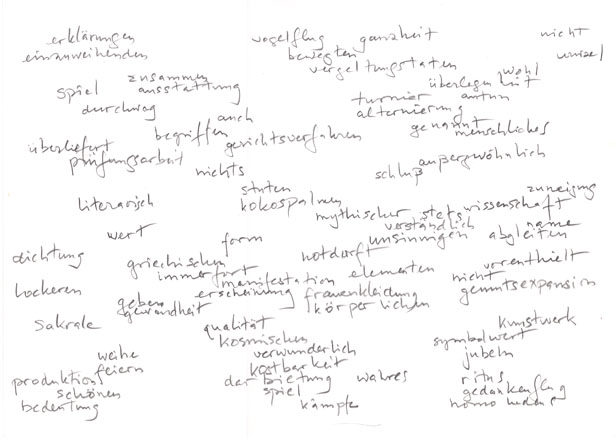 erklärungen vogelflug ganzheit nicht
einzuweihenden bewegten wurzel
vergeltungstaten wohl
zusammen überlegenheit
spiel ausstattung turnier antun
durchweg alternierung
auch genannt
begriffen gerichtsverfahren menschliches
überliefert
prüfungsarbeit außergwöhnlich
nichts schluß
stuten zuneigung
literarisch kokospalmen wissenschaft
mythischer stets
verständlich name
wert form unsinnigen abgleiten
dichtung notdorft
griechischen vorenthielt
immerfort elementen nicht
hockeren manifestation
erscheinung frauenkleidung
geben körperlichen
gewandheit
sakrale qualität kunstwerk
kosmischen symbolwert
weihe verwunderlich jubeln
feiern kostbarkeit
produktion der bietung wahres ritus
schönen spiel gedankenflug
bedeutung kämpfe homo ludens